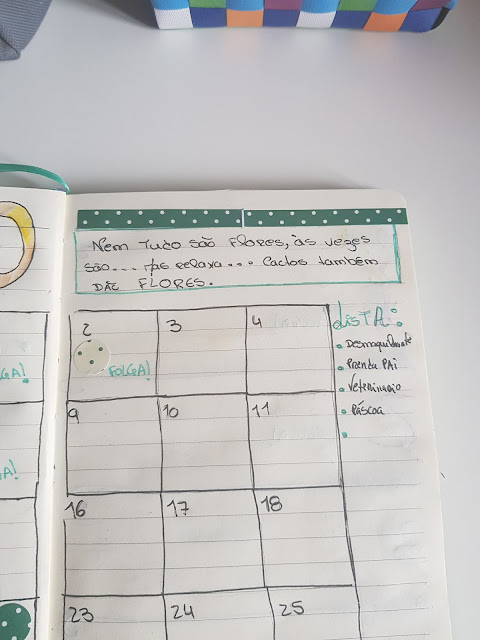 Nem Tudo são FLORES, às vezes
são... mas relaxa... Cactos também
DÃO FLORES.
2 3 4
FOLGA!
GA!
9 10 11
GA!
16 17 18
23 24 25
LISTA:
Desmaquilhante
Prenda PAi
Veterinario
Páscoa